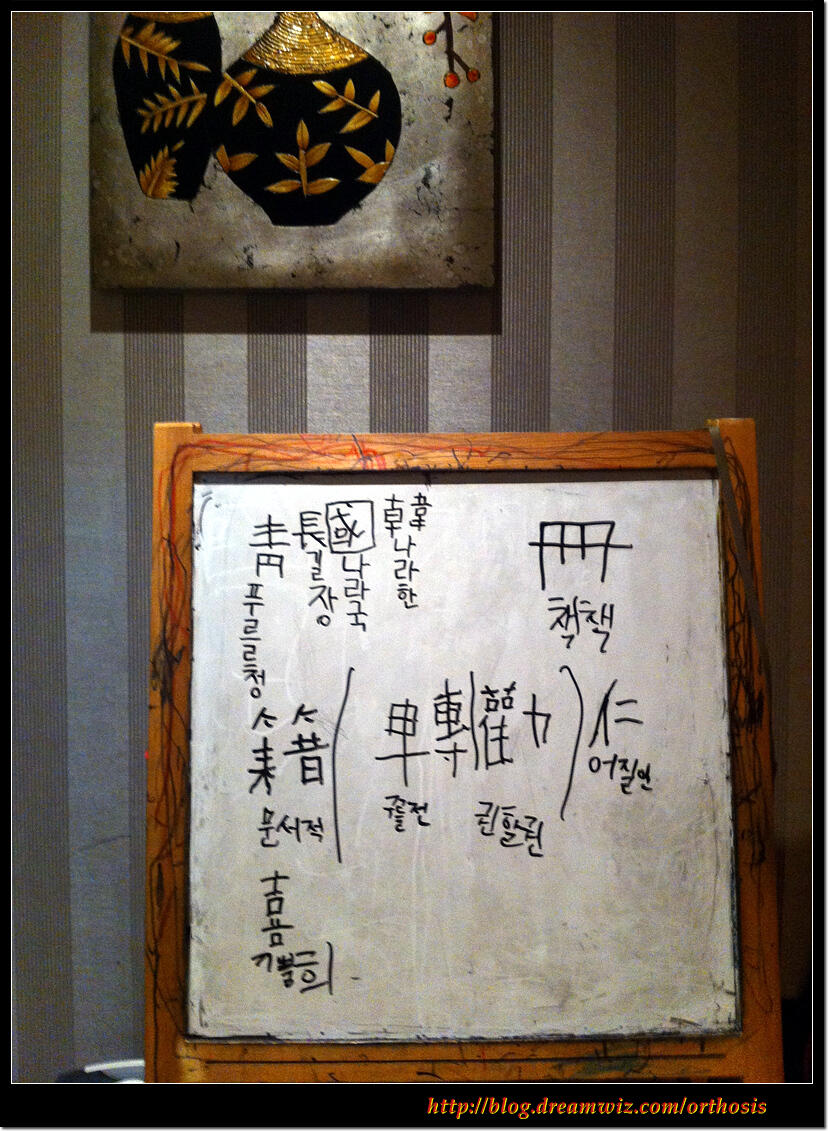 青 長 國 韓
푸를청
길장
나라국
나라한
冊
책책
籍 ( 轉 勸 ) 仁
문서적
권할권
어질인
喜
기쁠희
http://blog.dreamwiz.com/orthosis